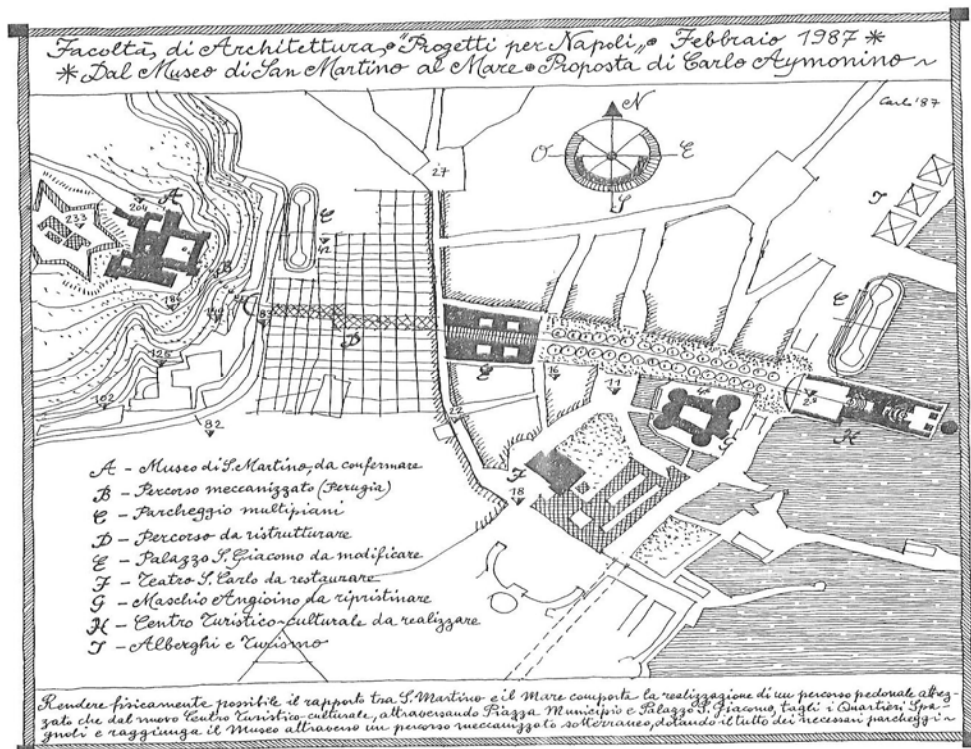 Facoltà di Architettura • "Progetti per Napoli" • Febbraio 1987 *
* Dal Museo di San Martino al Mare • Proposta di Carlo Aymonino ~
Carlo '87
N
O
E
S
27
A
204
233
C
42
I
B
186
83
D
125
102
82
E
16
11
22
C
4
G
H
F
18
A - Museo di S. Martino, da confermare
B - Percorso meccanizzato (Perugia)
C - Parcheggio multipiani
D - Percorso da ristrutturare
E - Palazzo S. Giacomo da modificare
F - Teatro S. Carlo da restaurare
G - Maschio Angioino da ripristinare
H - Centro Turistico-culturale da realizzare
I - Alberghi e Turismo
Rendere fisicamente possibile il rapporto tra S. Martino e il Mare comporta la realizzazione di un percorso pedonale attrez-
zato che dal nuovo Centro Turistico-culturale, attraversando Piazza Municipio e Palazzo S. Giacomo, tagli i Quartieri Spa-
gnoli e raggiunga il Museo attraverso un percorso meccanizzato sotterraneo, dotando il tutto dei necessari parcheggi ~